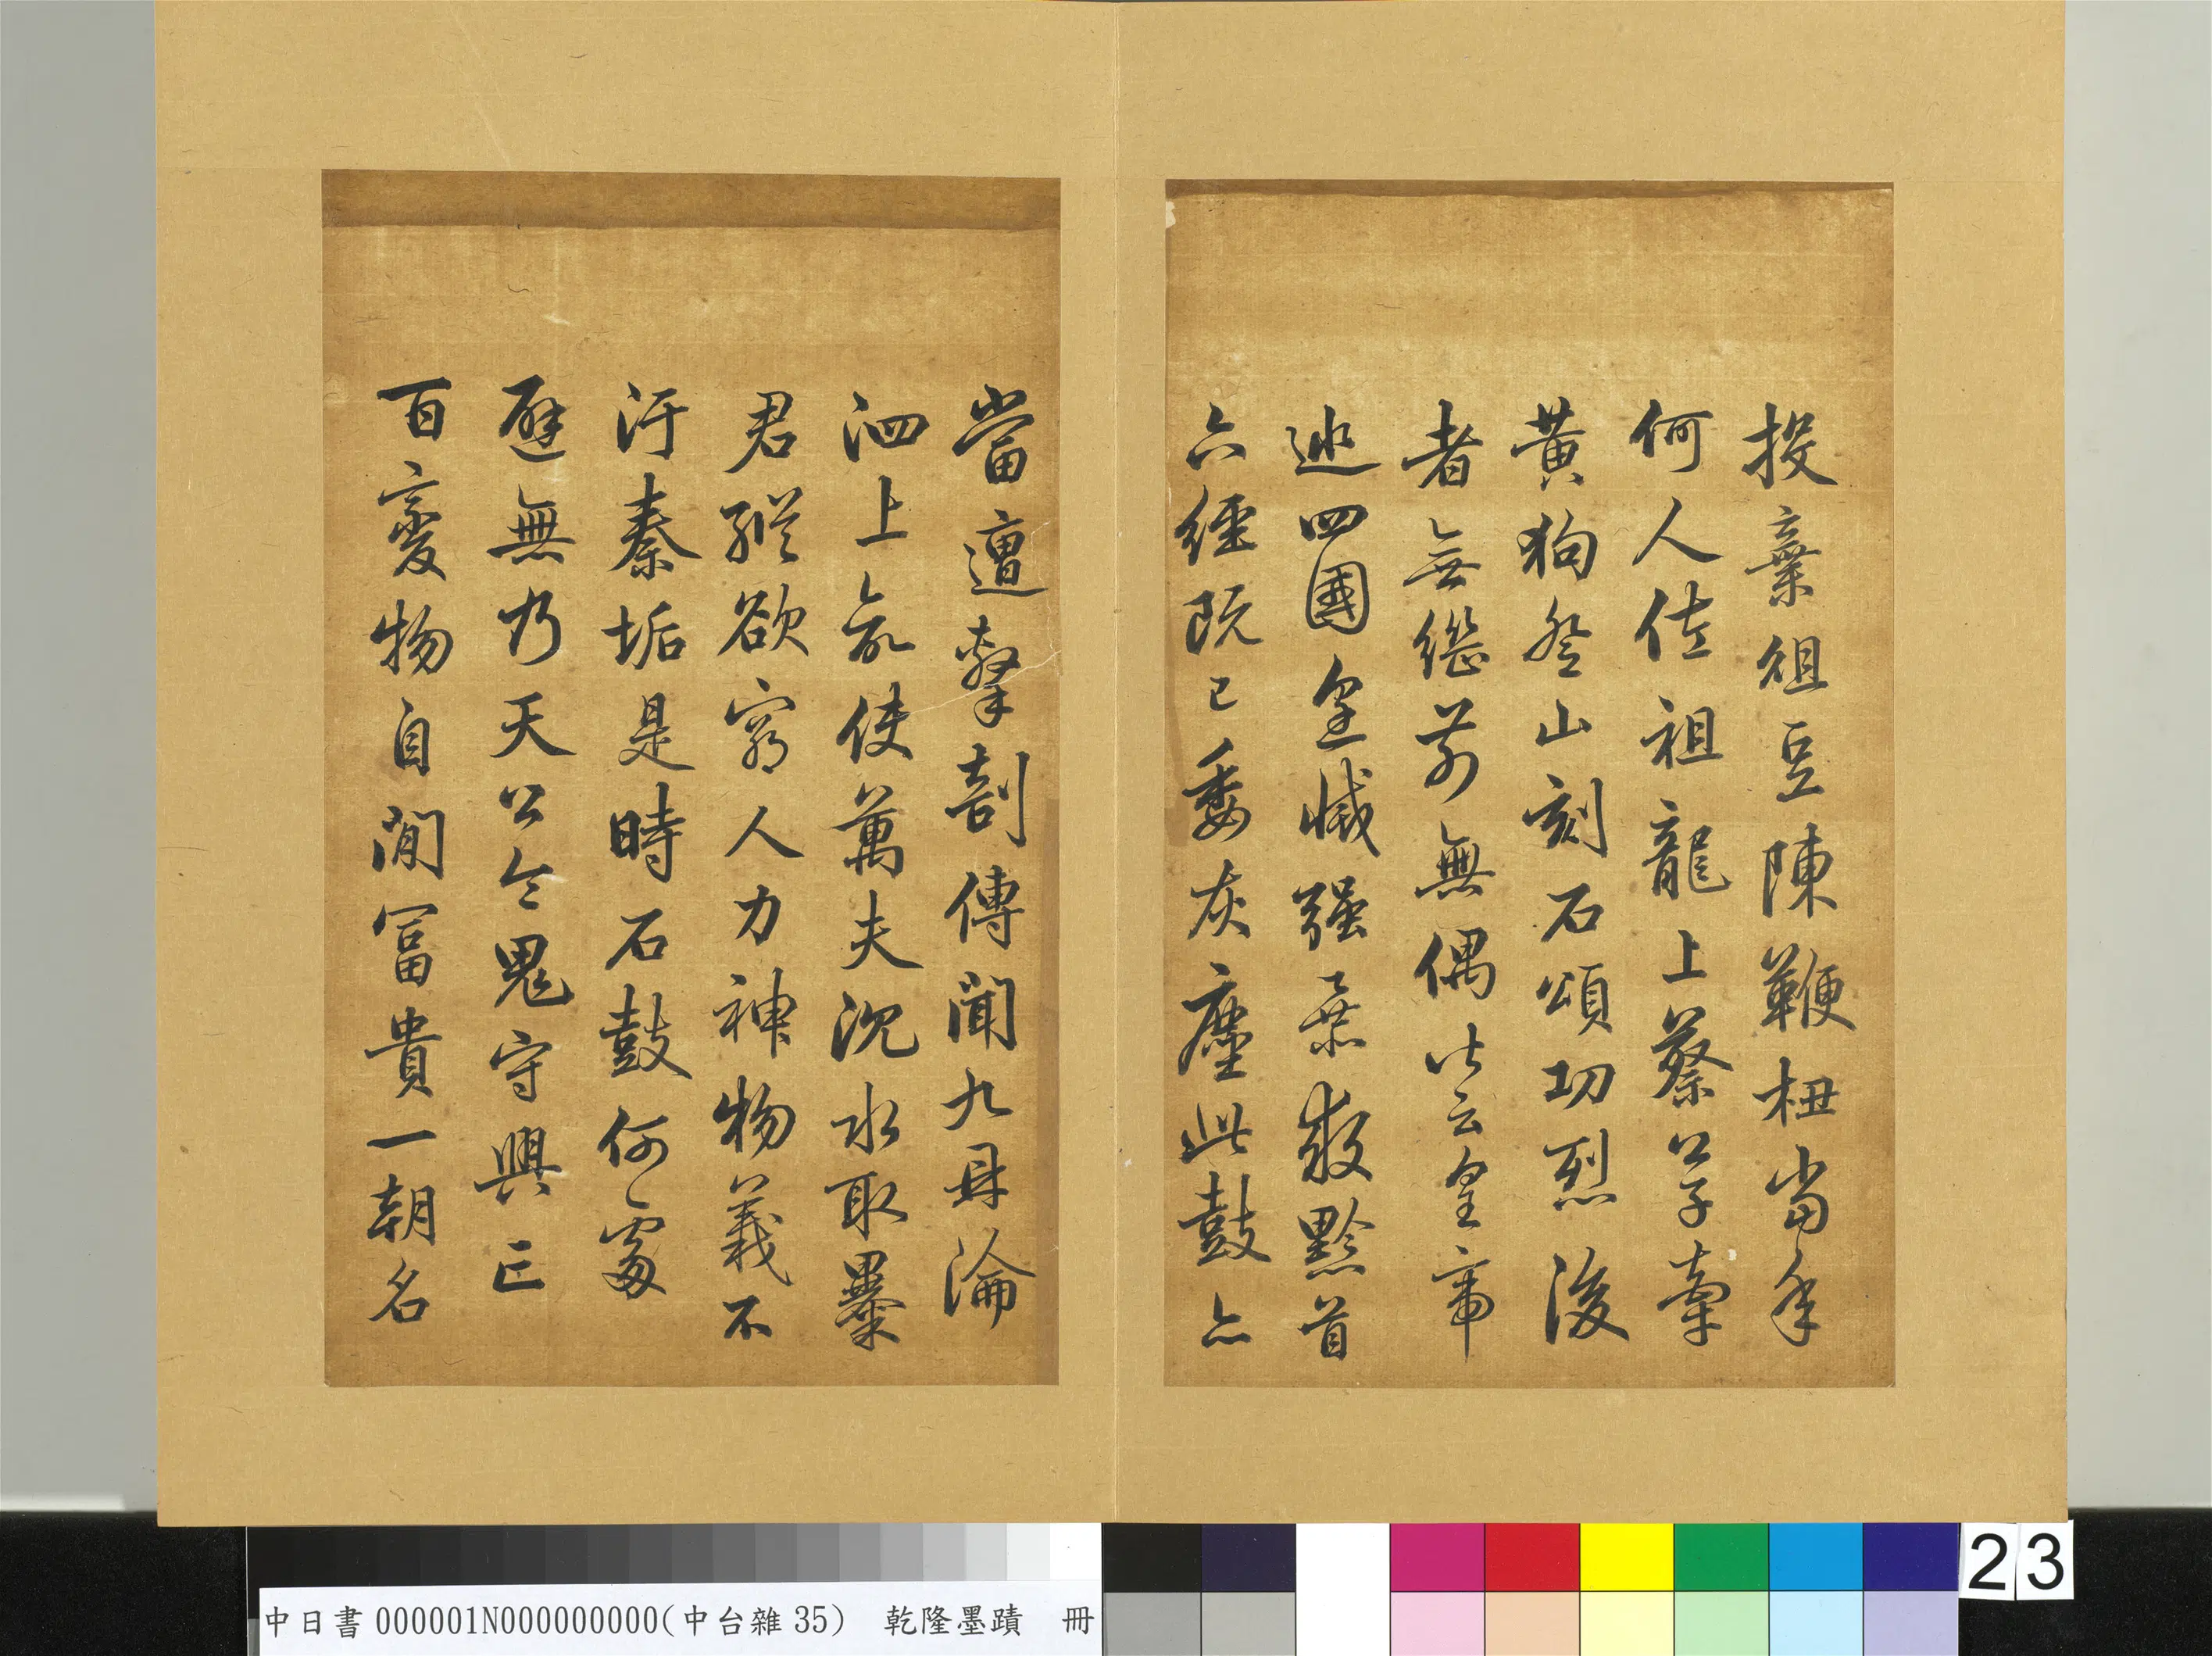 投棄俎豆陳鞭杻當年
何人佐祖龍上蔡公子牽
黃狗登山刻石頌功烈後
者無繼前無偶皆云皇帝
巡四國烹滅强暴救黔首
六經既已委灰塵此鼓亦
當遭擊剖傳聞九鼎淪
泗上欲使萬夫沈水取暴
君縱欲窮人力神物義不
汙秦垢是時石鼓何處
避無乃天公令鬼守興亡
百變物自閒富貴一朝名
中日書000001N000000000(中台雜35) 乾隆墨蹟 冊
23